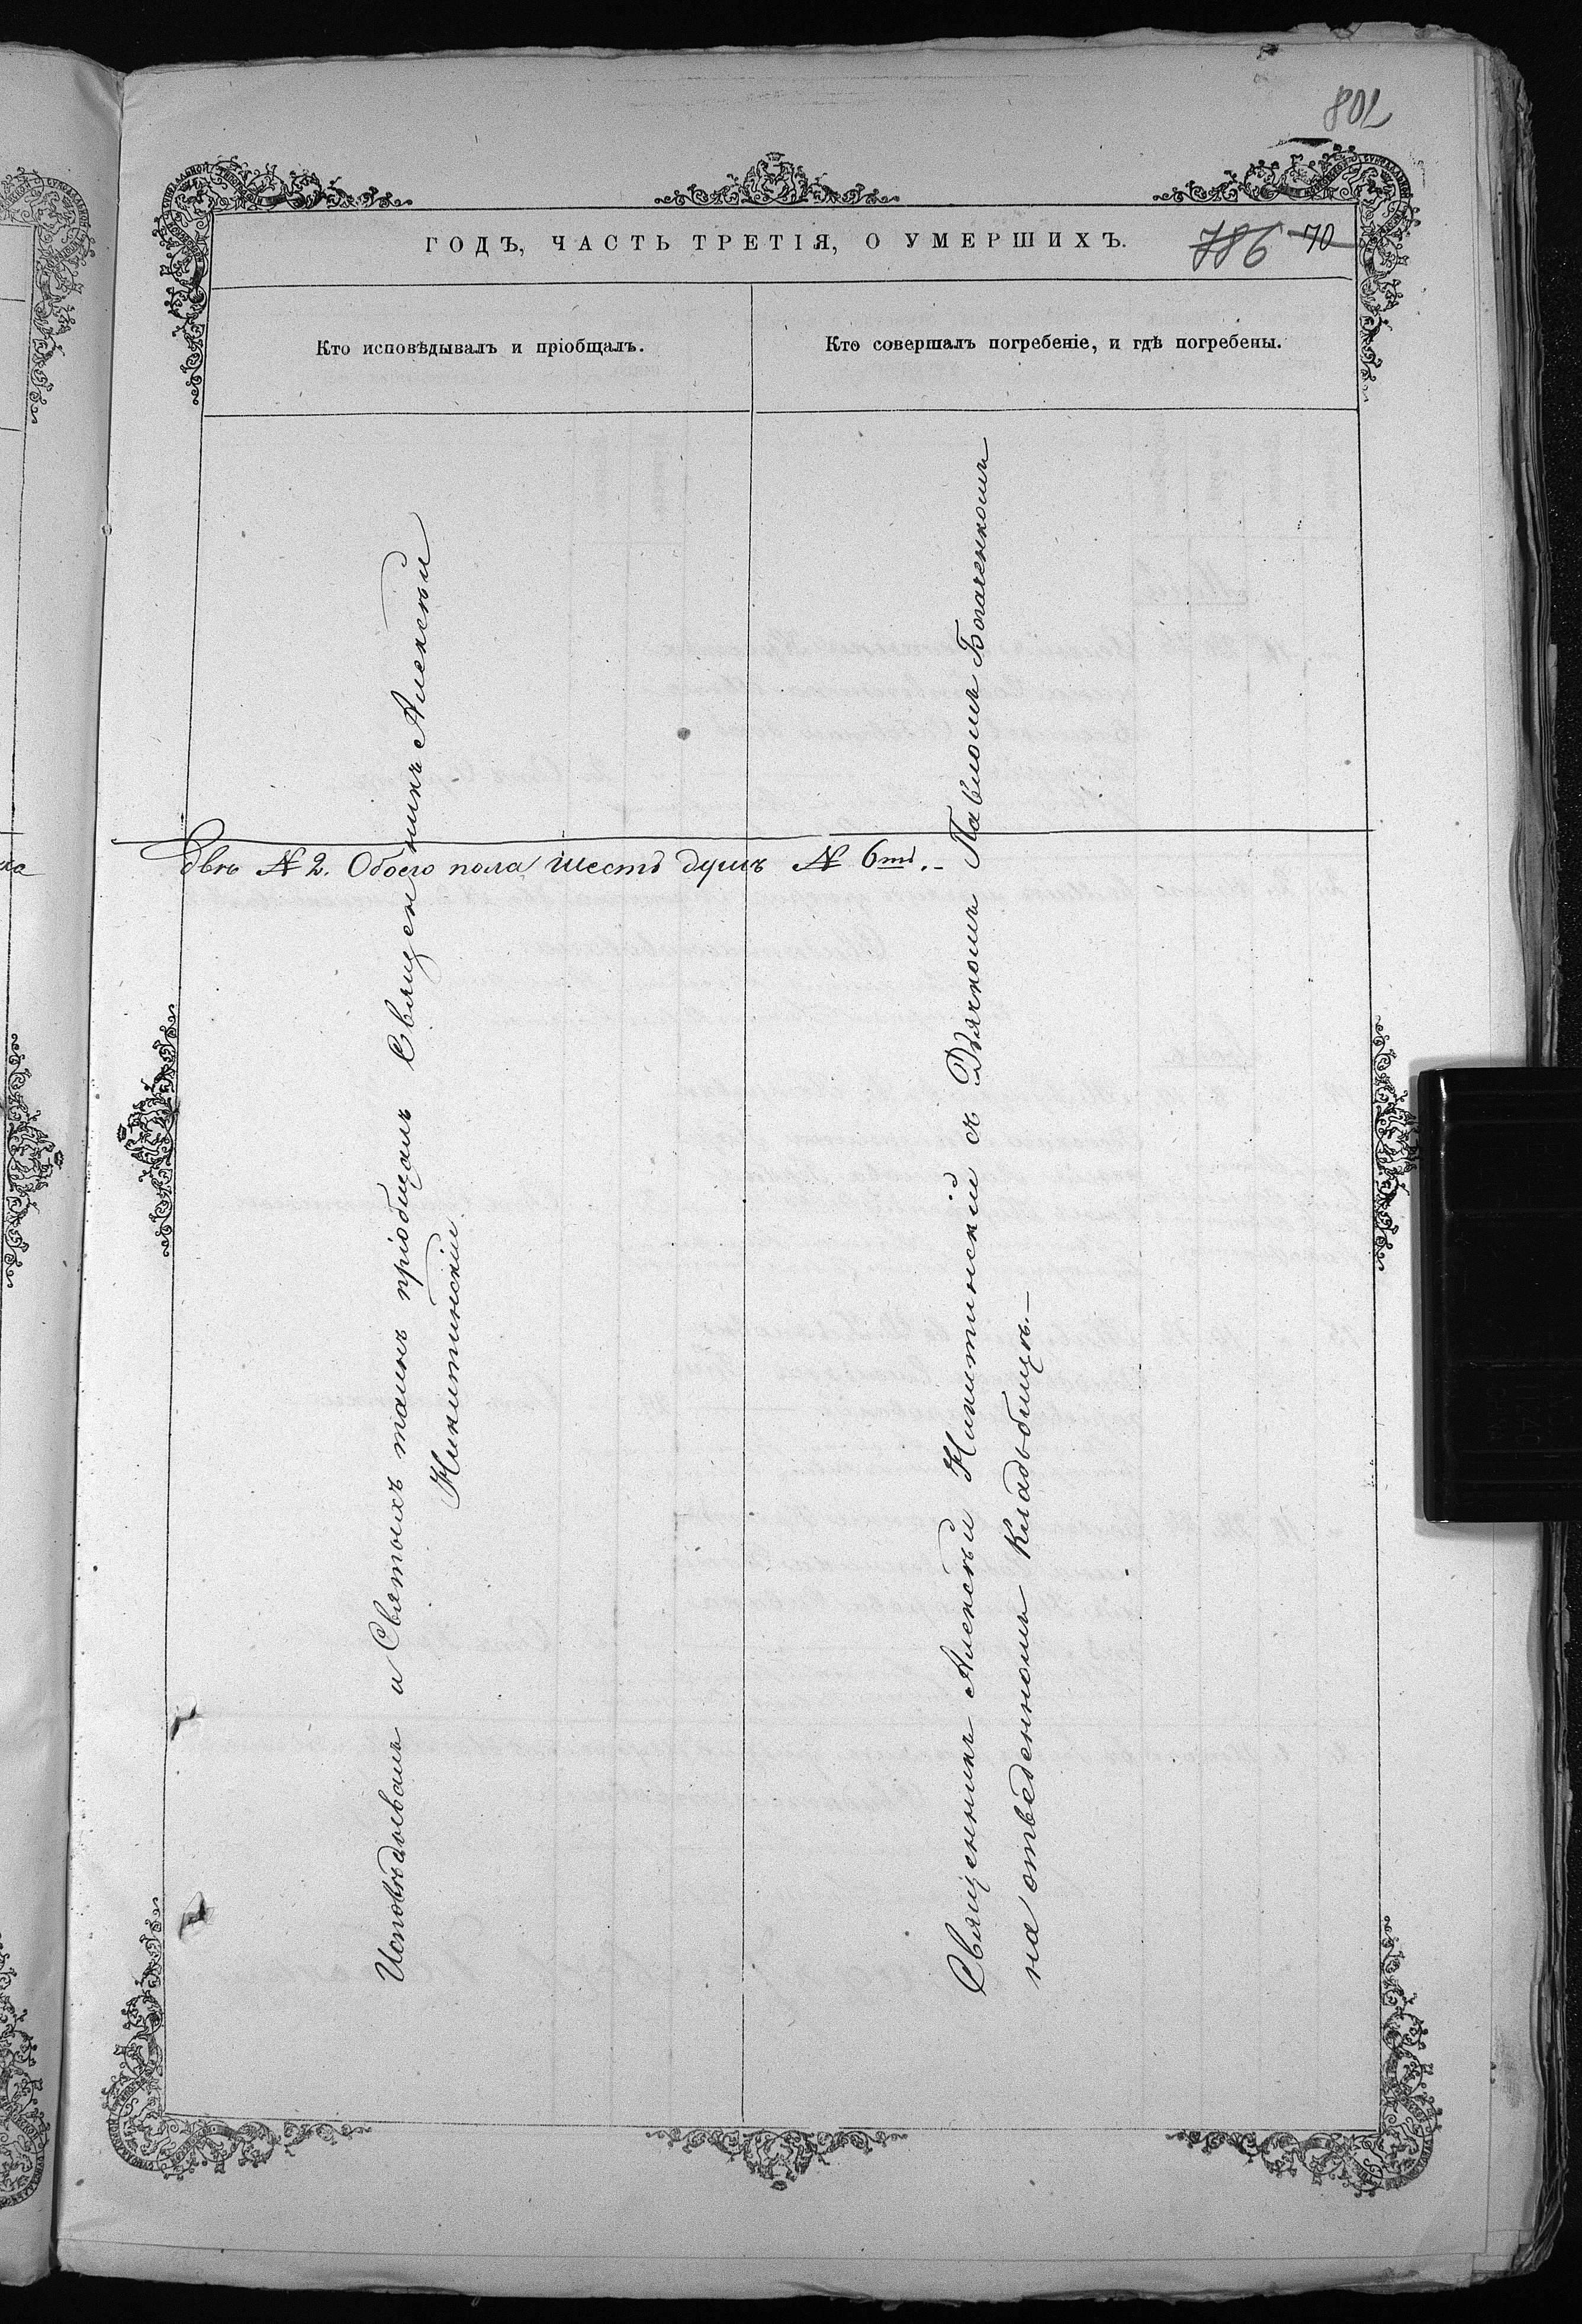 708
ГОДЪ, ЧАСТЬ ТРЕТІЯ, О УМЕРШИХЪ.
786 70
Кто исповѣдывалъ и пріобщалъ.
Кто совершалъ погребеніе, и гдѣ погребены.
двѣ № 2. Обоего пола шесть душъ № 6ть.-
Исповѣдывалъ и Святыхъ таинъ пріобщалъ Священникъ Алексѣй
Никитинскій
Священникъ Алексѣй Никитинскій съ Дьячкомъ Павломъ
на отведенномъ кладбищѣ.—